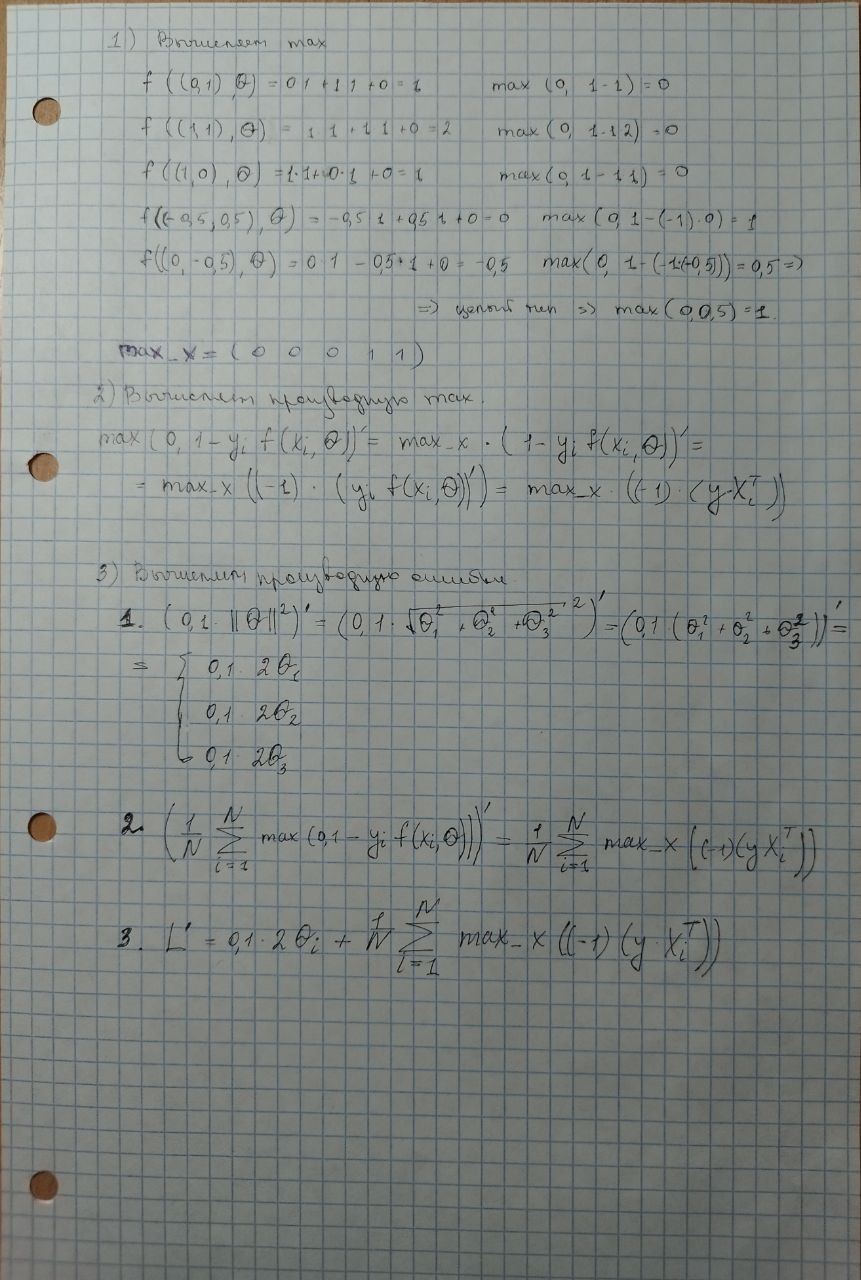 1) Вычисляем max
f ((0,1) θ) = 0 1 + 1 1 + 0 = 1 max (0, 1-1) = 0
f ((1,1), θ) = 1 1 + 1 1 + 0 = 2 max (0, 1-1 2) = 0
f ((1,0), θ) = 1·1 + 0·1 + 0 = 1 max (0, 1-1 1) = 0
f((-0,5, 0,5), θ) = -0,5 1 + 0,5 1 + 0 = 0 max (0, 1-(-1)·0) = 1
f((0, -0,5), θ) = 0 1 - 0,5·1 + 0 = -0,5 max(0, 1-(-1·(-0,5))) = 0,5 =>
=> целый тип => max (0, 0,5) = 1.
max_x = (0 0 0 1 1)
2) Вычисляем производную max.
max (0, 1 - yi f(xi, θ))' = max_x · (1 - yi f(xi, θ))' =
= max_x ((-1) · (yi f(xi, θ))') = max_x · ((-1) · (y·Xiᵀ))
3) Вычисляем производную ошибки
1. (0,1 · ||θ||²)' = (0,1 · √(θ₁² + θ₂² + θ₃²)²)' = (0,1 · (θ₁² + θ₂² + θ₃²))' =
= { 0,1 · 2θ₁
0,1 · 2θ₂
0,1 · 2θ₃
2. (1/N ∑ᵢ₌₁ᴺ max (0, 1 - yi f(xi, θ)))' = 1/N ∑ᵢ₌₁ᴺ max_x ((-1)(y Xiᵀ))
3. L' = 0,1 · 2θi + 1/N ∑ᵢ₌₁ᴺ max_x ((-1) (y · Xiᵀ))